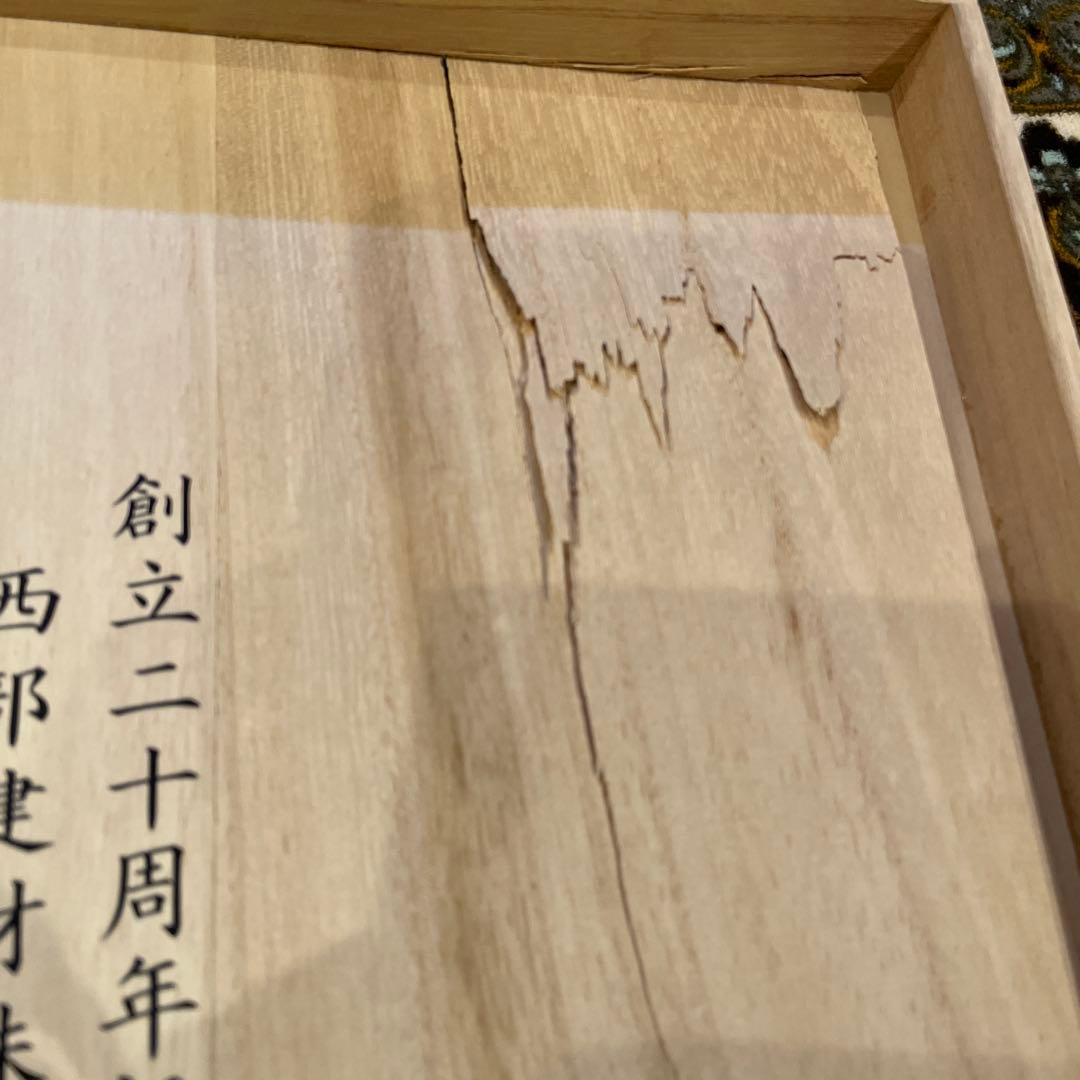 創立二十周年
西部建材株